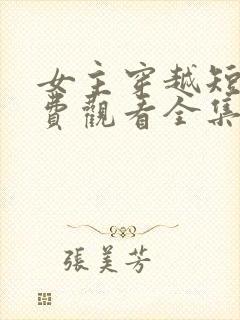 女主穿越短
費觀看全集
張美芳